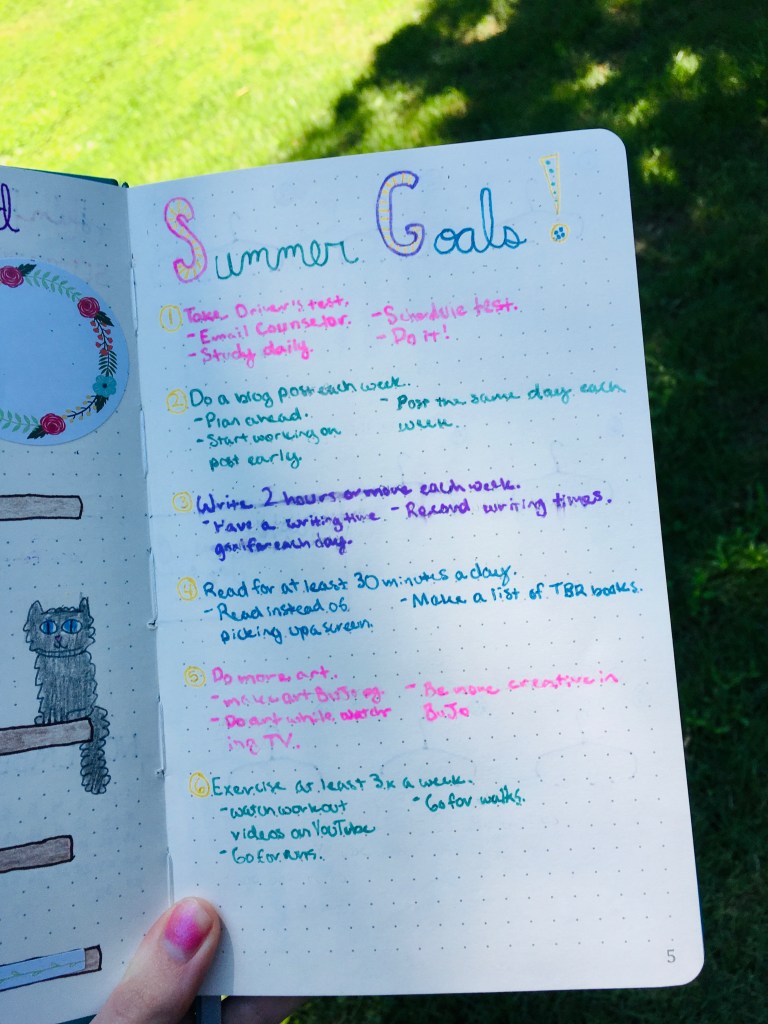 d
Summer Goals!
1 Take Driver's test.
- Email Counselor.
- Study daily.
- Schedule test.
- Do it!
2 Do a blog post each week.
- Plan ahead.
- Start working on
post early.
- Post the same day each
week.
3 Write 2 hours or more each week.
- Have a writing time
goal for each day.
- Record writing times.
4 Read for at least 30 minutes a day.
- Read instead of
picking up a screen.
- Make a list of TBR books.
5 Do more art.
- make art BuJo pg.
- Do art while watch
ing TV.
- Be more creative in
BuJo
6 Exercise at least 3x a week.
- watch workout
videos on YouTube
- Go for runs.
- Go for walks.
5